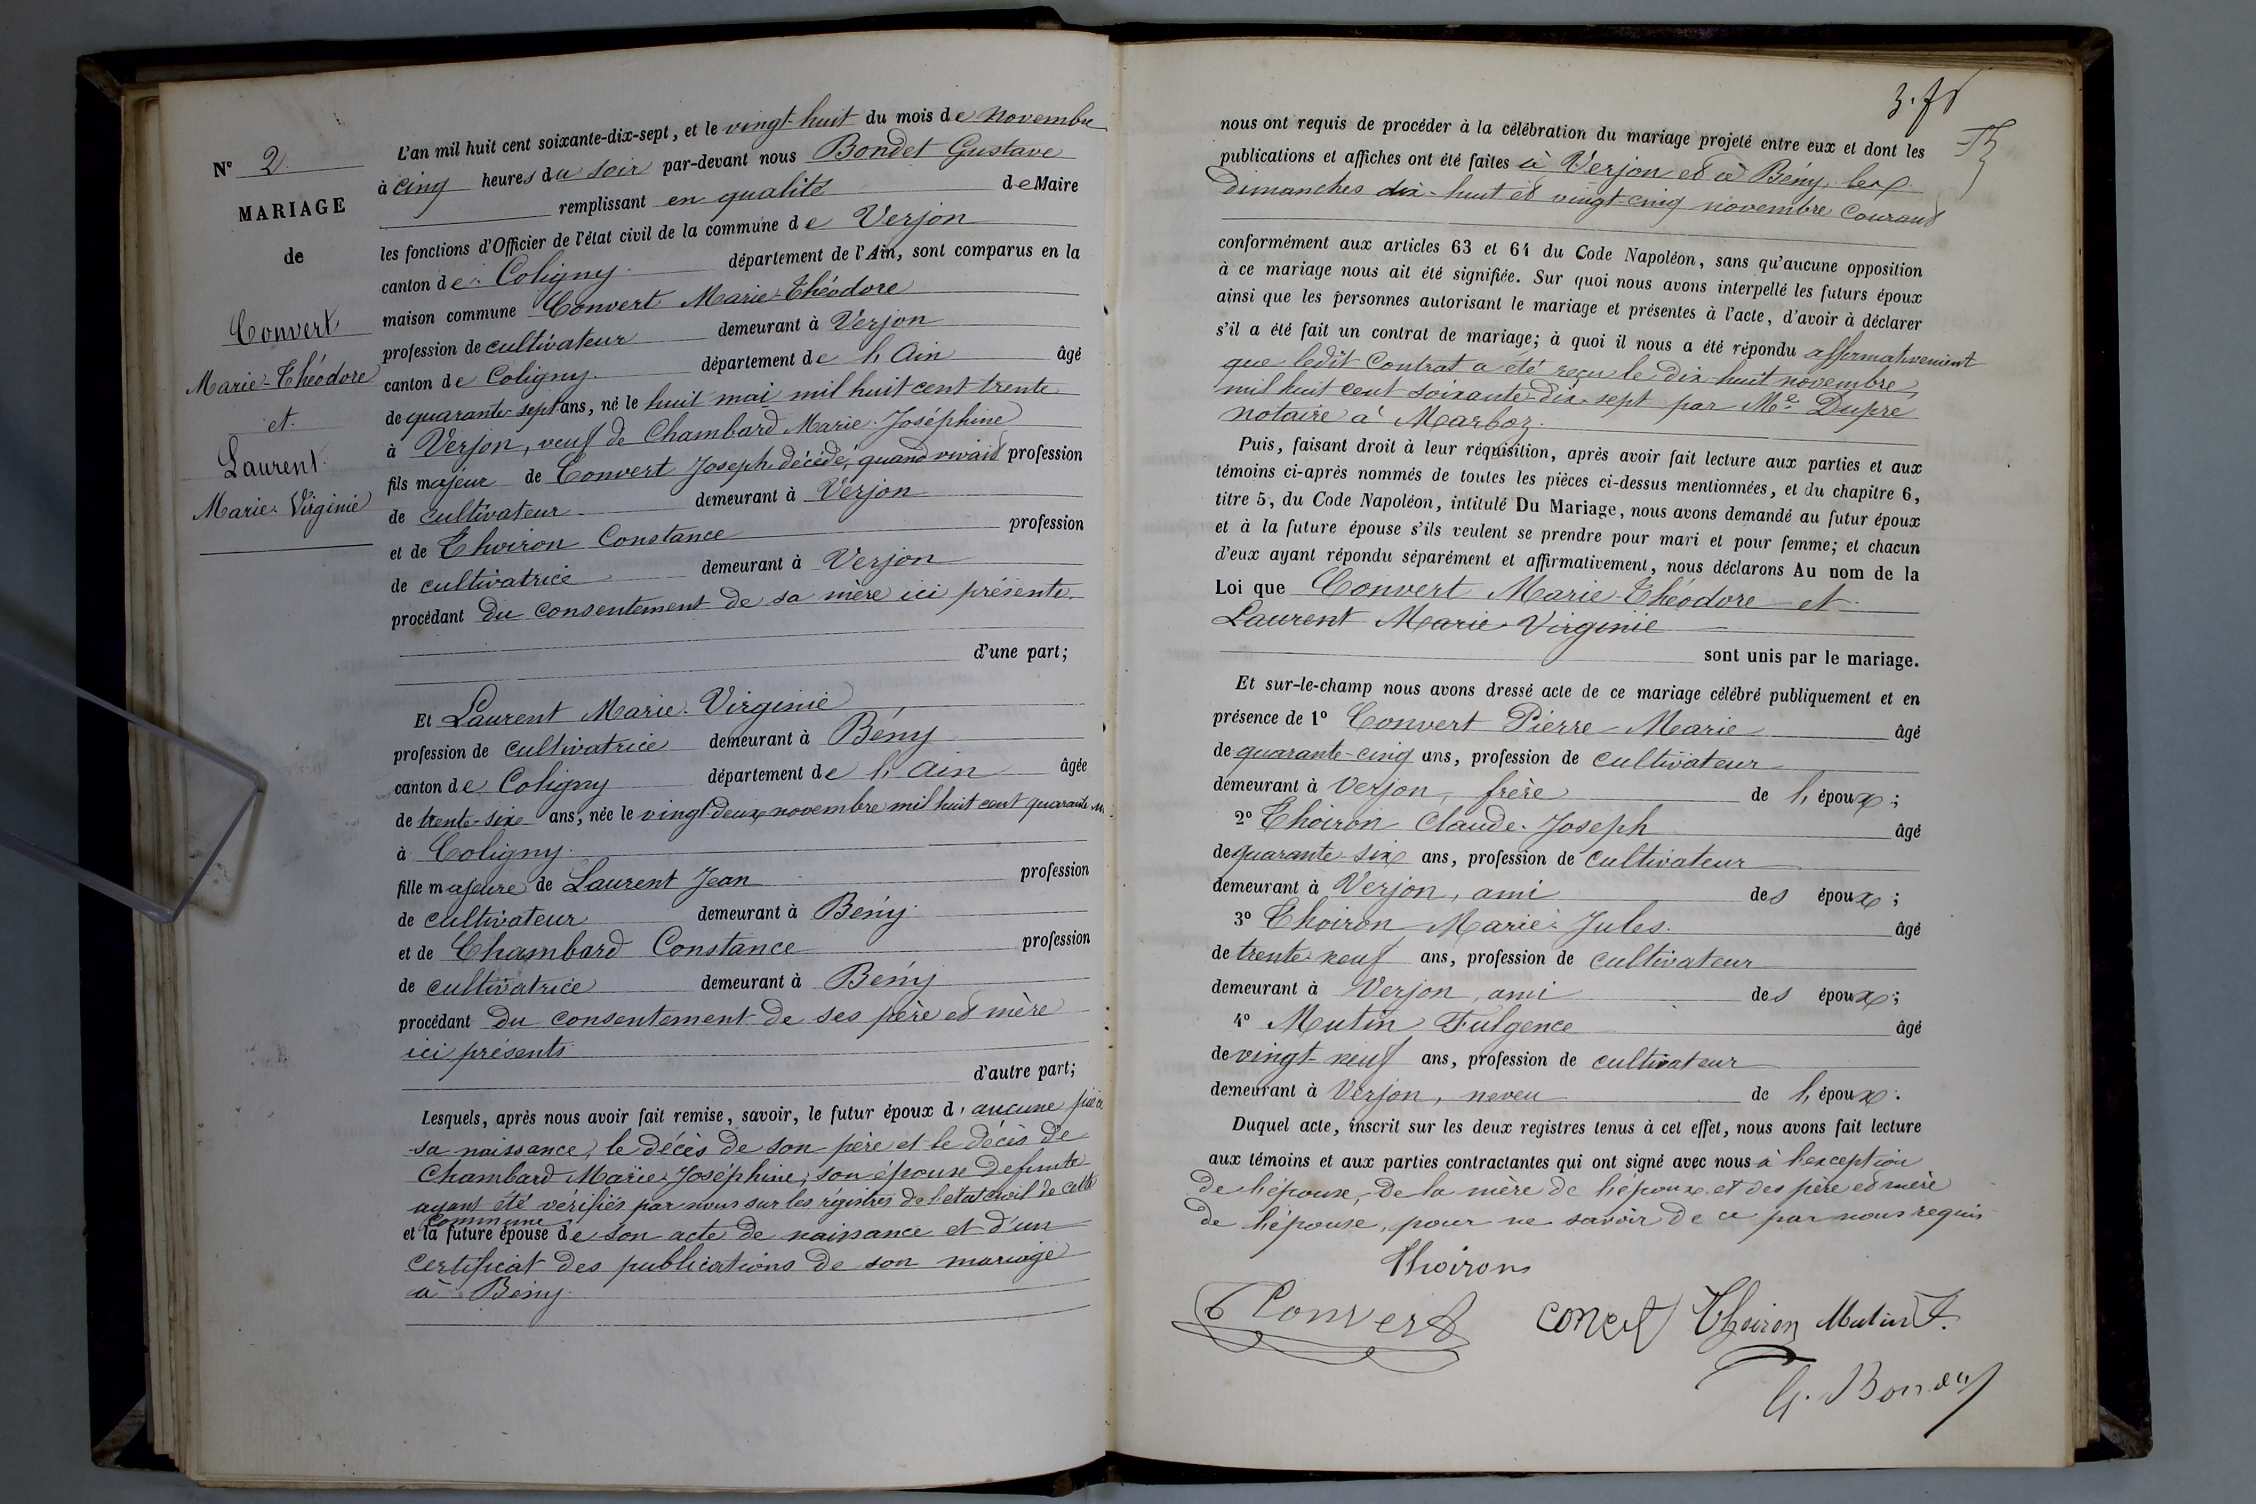 N° 2
MARIAGE
de
Convert
Marie-Théodore
et
Laurent
Marie-Virginie
L'an mil huit cent soixante-dix-sept, et le vingt-huit du mois de Novembre
à cinq heures du soir par-devant nous Bondet Gustave
remplissant en qualité de Maire
les fonctions d'Officier de l'état civil de la commune de Verjon
canton de Coligny département de l'Ain, sont comparus en la
maison commune Convert Marie-Théodore
profession de cultivateur demeurant à Verjon
canton de Coligny département de l'Ain âgé
de quarante-sept ans, né le huit mai mil huit cent trente
à Verjon, veuf de Chambard Marie-Joséphine
fils majeur de Convert Joseph décédé, quand vivait profession
de cultivateur demeurant à Verjon
et de Thoiron Constance profession
de cultivatrice demeurant à Verjon
procédant du consentement de sa mère ici présente
d'une part;
Et Laurent Marie-Virginie
profession de cultivatrice demeurant à Bény
canton de Coligny département de l'Ain âgée
de trente-six ans, née le vingt-deux novembre mil huit cent quarante un
à Coligny
fille majeure de Laurent Jean profession
de cultivateur demeurant à Bény
et de Chambard Constance profession
de cultivatrice demeurant à Bény
procédant du consentement de ses père et mère
ici présents
d'autre part;
Lesquels, après nous avoir fait remise, savoir, le futur époux d'aucune pièce
sa naissance, le décès de son père et le décès de
Chambard Marie-Joséphine, son épouse defunte
ayant été vérifiés par nous sur les régistres de l'état civil de cette
commune
et la future épouse de son acte de naissance et d'un
certificat des publications de son mariage
à Bény
nous ont requis de procéder à la célébration du mariage projeté entre eux et dont les
publications et affiches ont été faites à Verjon et à Bény, les
Dimanches dix-huit et vingt-cinq novembre courant
conformément aux articles 63 et 64 du Code Napoléon, sans qu'aucune opposition
à ce mariage nous ait été signifiée. Sur quoi nous avons interpellé les futurs époux
ainsi que les personnes autorisant le mariage et présentes à l'acte, d'avoir à déclarer
s'il a été fait un contrat de mariage; à quoi il nous a été répondu affirmativement
que ledit contrat a été reçu le dix-huit novembre
mil huit cent soixante-dix-sept par Me Dupré
notaire à Marboz.
Puis, faisant droit à leur réquisition, après avoir fait lecture aux parties et aux
témoins ci-après nommés de toutes les pièces ci-dessus mentionnées, et du chapitre 6,
titre 5, du Code Napoléon, intitulé Du Mariage, nous avons demandé au futur époux
et à la future épouse s'ils veulent se prendre pour mari et pour femme; et chacun
d'eux ayant répondu séparément et affirmativement, nous déclarons Au nom de la
Loi que Convert Marie-Théodore et
Laurent Marie-Virginie
sont unis par le mariage.
Et sur-le-champ nous avons dressé acte de ce mariage célébré publiquement et en
présence de 1° Convert Pierre-Marie âgé
de quarante-cinq ans, profession de cultivateur
demeurant à Verjon, frère de l'époux;
2° Thoiron Claude-Joseph âgé
de quarante-six ans, profession de cultivateur
demeurant à Verjon, ami des époux;
3° Thoiron Marie-Jules. âgé
de trente-neuf ans, profession de cultivateur
demeurant à Verjon, ami des époux;
4° Mutin Fulgence âgé
de vingt-neuf ans, profession de cultivateur
demeurant à Verjon, neveu de l'époux.
Duquel acte, inscrit sur les deux registres tenus à cet effet, nous avons fait lecture
aux témoins et aux parties contractantes qui ont signé avec nous à l'exception
de l'épouse, de la mère de l'époux et des père et mère
de l'épouse, pour ne savoir de ce par nous requis
Thoiron
Convert Convert Thoiron Mutin F.
G. Bondet